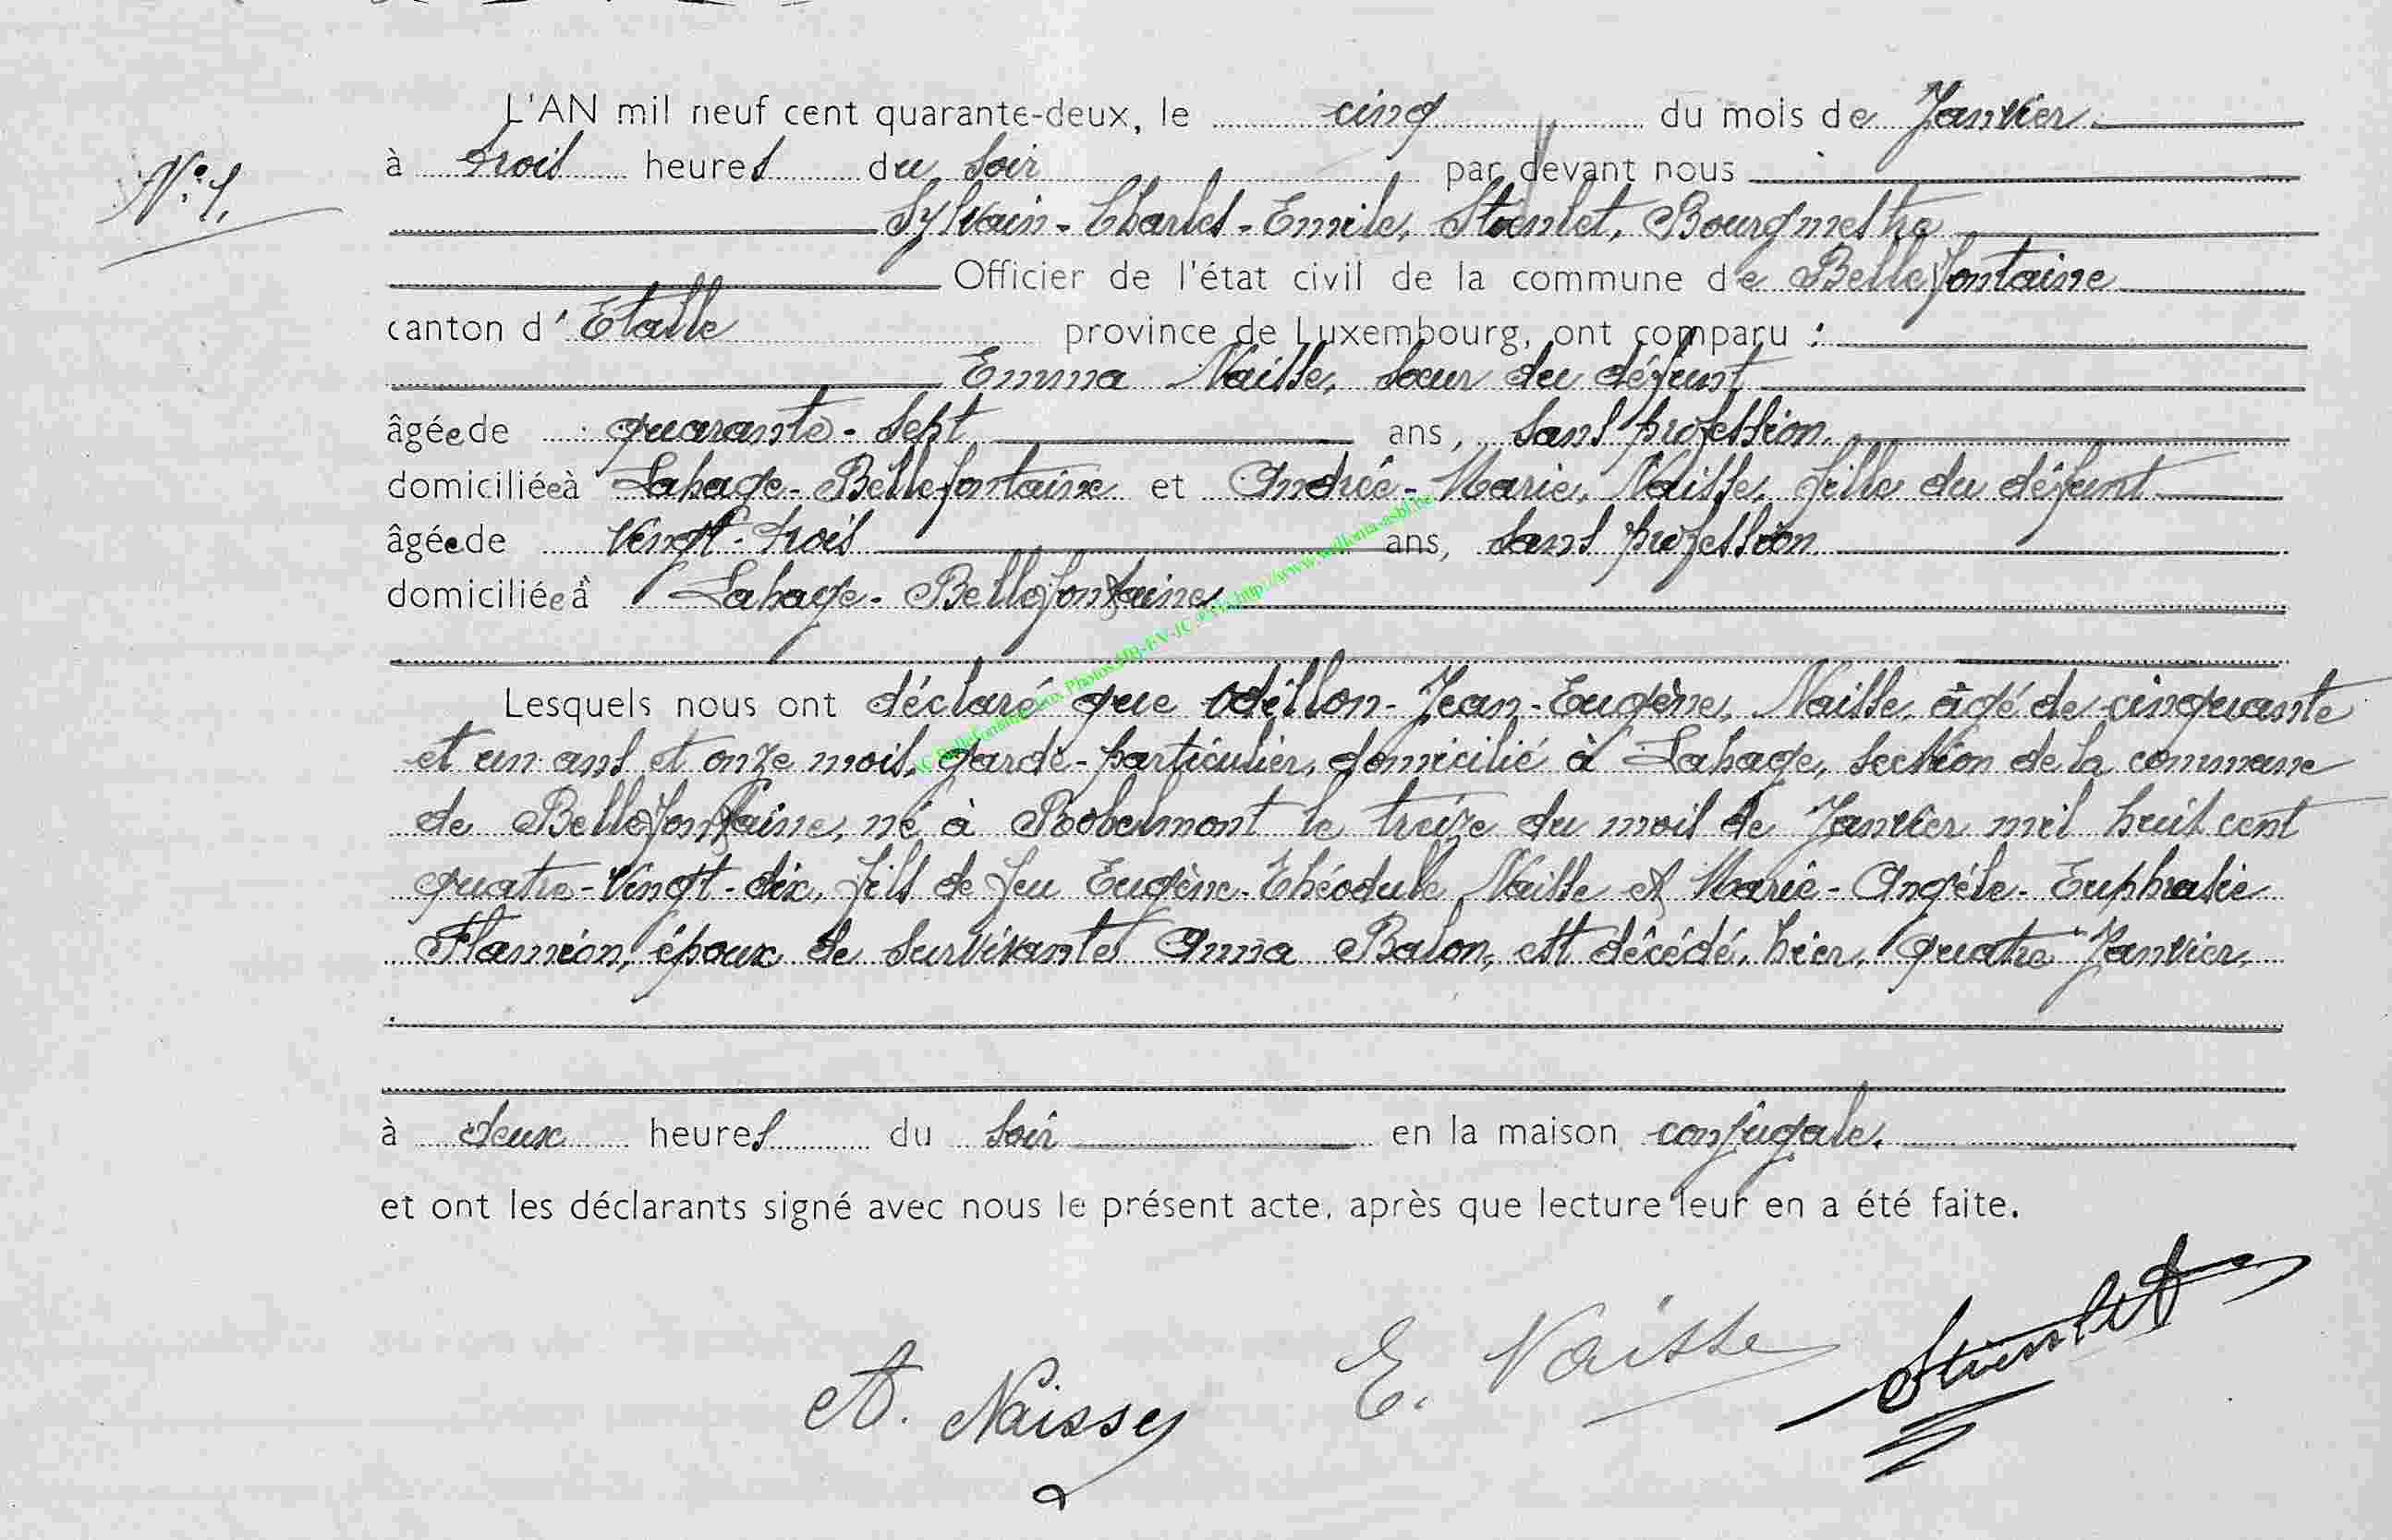 L'AN mil neuf cent quarante-deux, le cinq du mois de Janvier
N° 1.
à trois heures du soir par devant nous
Sylvain-Charles-Emile, Stienlet, Bourgmestre
Officier de l'état civil de la commune de Bellefontaine
canton d'Etalle province de Luxembourg, ont comparu :
Emma Naisse, soeur du défunt
âgée de quarante-sept ans, sans profession.
domiciliée à Lahage-Bellefontaine et Andrée-Marie, Naisse, fille du défunt
âgée de vingt-trois ans, sans profession
domiciliée à Lahage-Bellefontaine
Lesquels nous ont déclaré que Odillon-Jean-Eugène, Naisse, âgé de cinquante
et un ans et onze mois, garde-particulier, domicilié à Lahage, section de la commune
de Bellefontaine, né à Robelmont le treize du mois de Janvier mil huit cent
quatre-vingt-dix, fils de feu Eugène-Théodule Naisse et Marie-Angéle-Euphrasie
Flamion, époux de survivante Anna Balon, est décédé, hier, quatre Janvier,
à deux heures du soir en la maison conjugale.
et ont les déclarants signé avec nous le présent acte, après que lecture leur en a été faite.
A. Naisse E. Naisse Stienlet